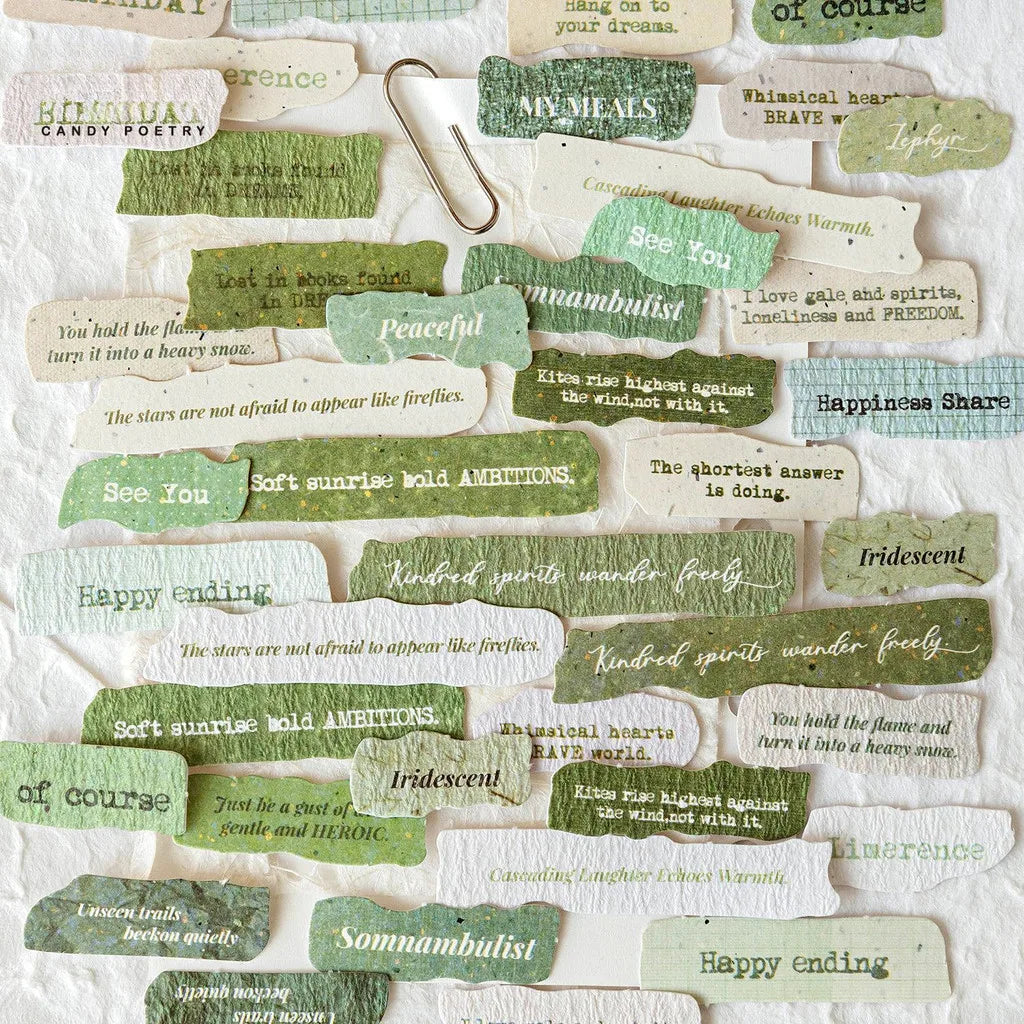 Hang on to
your dreams.
of course
BIRTHDAY
CANDY POETRY
MY MEALS
Whimsical hearts
BRAVE
Zephyr
Lost in books found
in DREAMS.
Cascading Laughter Echoes Warmth.
See You
Lost in books found
in
Somnambulist
I love gale and spirits,
loneliness and FREEDOM.
You hold the
turn it into a heavy snow.
Peaceful
Kites rise highest against
the wind,not with it.
Happiness Share
The stars are not afraid to appear like fireflies.
See You
Soft sunrise hold AMBITIONS.
The shortest answer
is doing.
Iridescent
Happy ending
Kindred spirits wander freely
The stars are not afraid to appear like fireflies.
Kindred spirits wander freely
Soft sunrise hold AMBITIONS.
Whimsical hearts
BRAVE world.
You hold the flame and
turn it into a heavy snow.
of course
Just be a gust of
gentle and HEROIC.
Iridescent
Kites rise highest against
the wind,not with it.
Limerence
Cascading Laughter Echoes Warmth.
Unseen trails
beckon quietly
Somnambulist
Happy ending
Unseen trails
beckon quietly